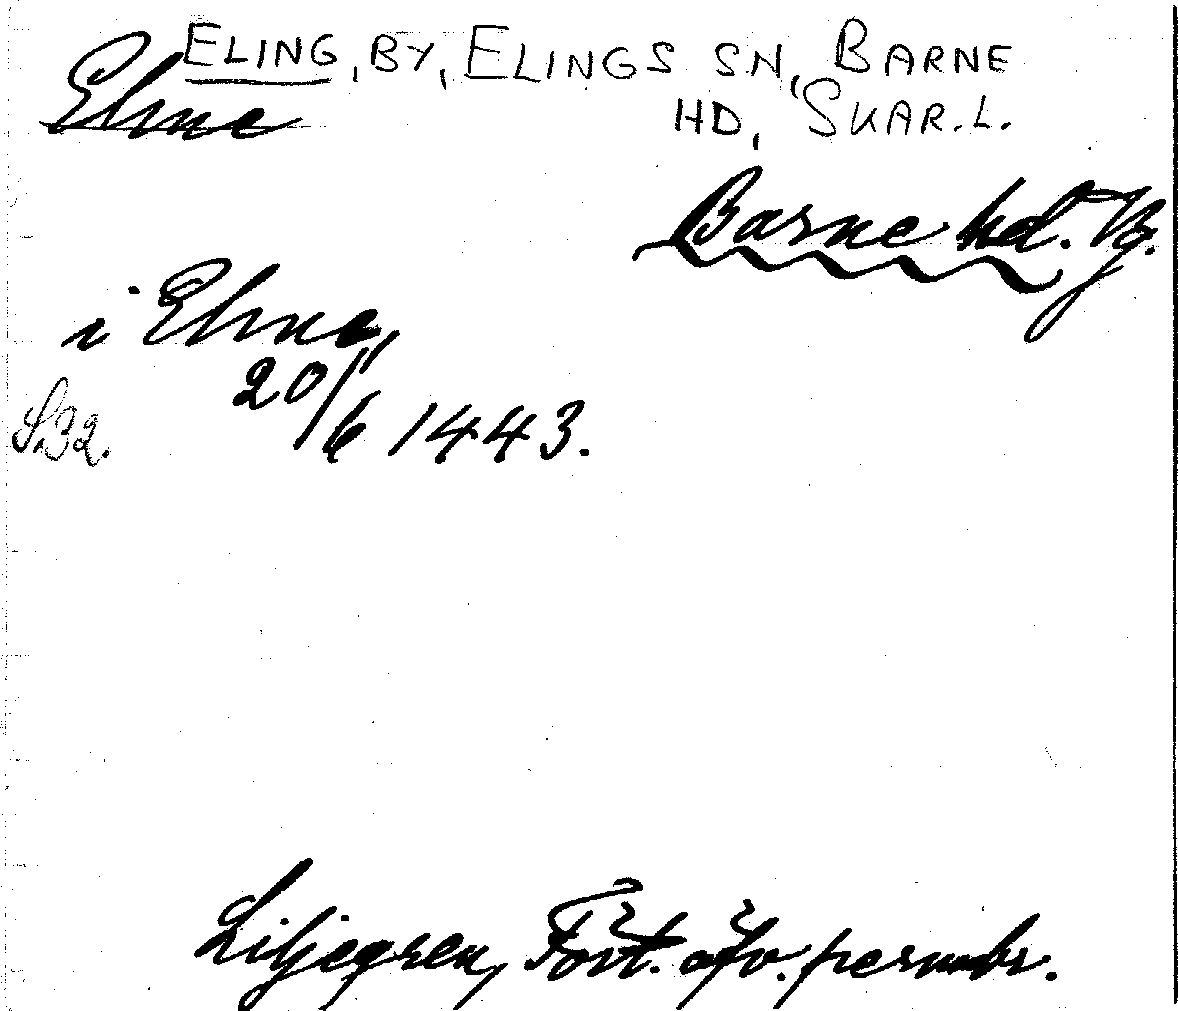 ELING, BY, ELINGS SN, BARNE
HD, SKAR.L.
Elme
Barne hd. Vg.
i Elme,
20/6 1443.
S.32.
Liljegren, Fört. öfv. permbr.